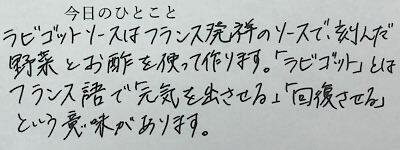 今日のひとこと
ラビゴットソースはフランス発祥のソースで、刻んだ
野菜とお酢を使って作ります。「ラビゴット」とは
フランス語で「元気を出させる」「回復させる」
という意味があります。